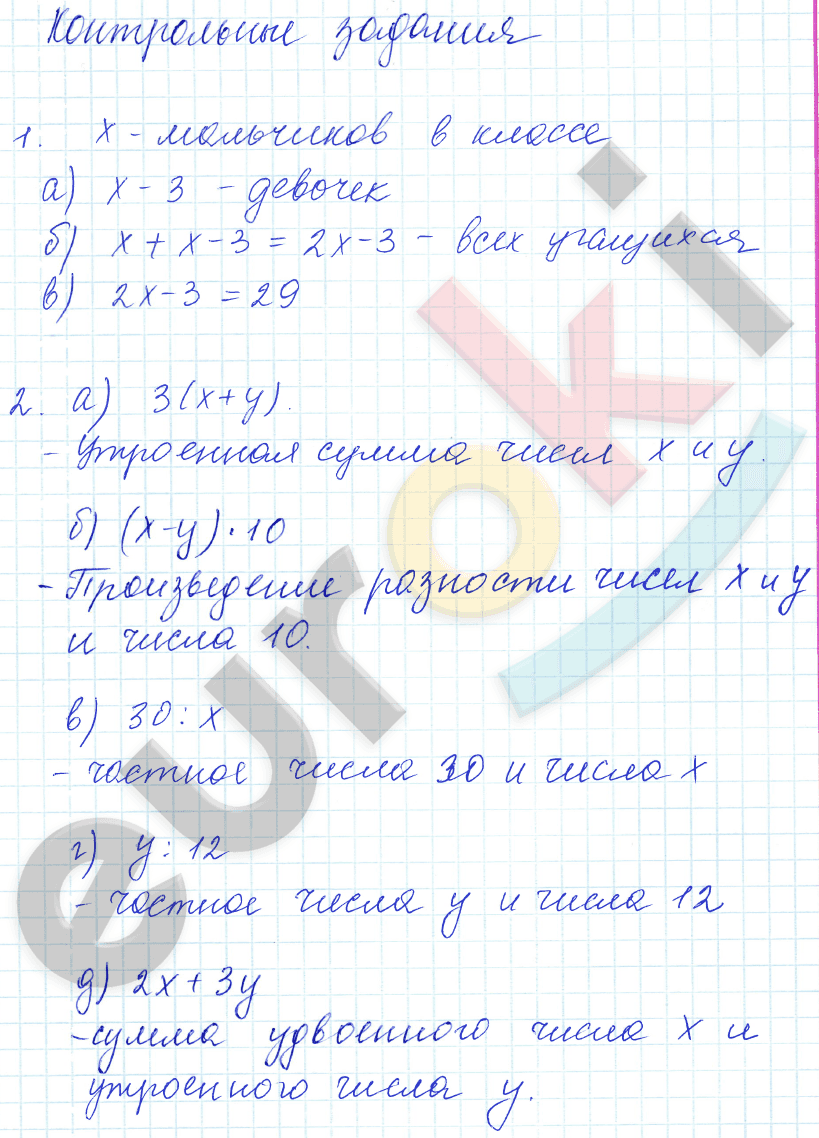 Контрольные задания
1. x - мальчиков в классе
а) x - 3 - девочек
б) x + x - 3 = 2x - 3 - всех учащихся
в) 2x - 3 = 29
2. а) 3(x+y).
- Утроенная сумма чисел x и y.
б) (x-y)·10
- Произведение разности чисел x и y
и числа 10.
в) 30 : x
- частное числа 30 и числа x
г) y : 12
- частное числа y и числа 12
д) 2x + 3y
- сумма удвоенного числа x и
утроенного числа y.
euroki